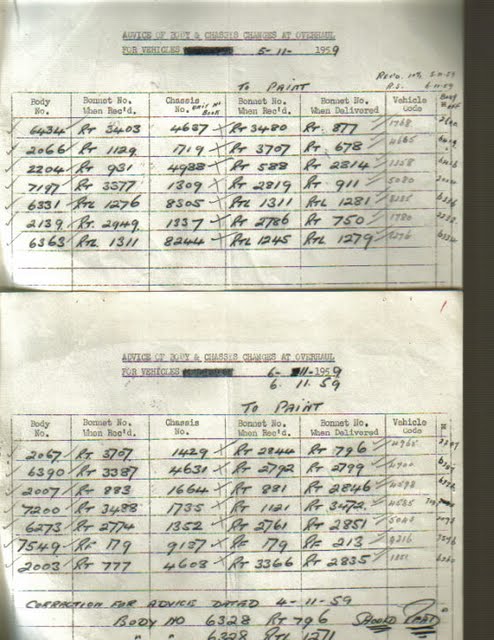 ADVICE OF BODY & CHASSIS CHANGES AT OVERHAUL
FOR VEHICLES 5-11- 1959
TO PAINT
Body No. Bonnet No. When Rec'd. Chassis No. Bonnet No. When Rec'd. Bonnet No. When Delivered Vehicle Code
6434 RT 3403 4637 RT 3480 RT 877 1768
2066 RT 1129 1719 RT 3707 RT 678 4665
2204 RT 931 4988 RT 588 RT 2814
7197 RT 3377 1309 RT 2819 RT 911 5080
6331 RTL 1276 8305 RTL 1311 RTL 1281
2139 RT 2949 1337 RT 2786 RT 750 1780
6363 RTL 1311 8244 RTL 1245 RTL 1279
ADVICE OF BODY & CHASSIS CHANGES AT OVERHAUL
FOR VEHICLES 6-11-1959
6. 11. 59
TO PAINT
Body No. Bonnet No. When Rec'd. Chassis No. Bonnet No. When Rec'd. Bonnet No. When Delivered Vehicle Code
2067 RT 3707 1429 RT 2844 RT 796
6390 RT 3387 4631 RT 2792 RT 2799
2007 RT 883 1664 RT 881 RT 2846
7200 RT 3488 1735 RT 1121 RT 3472
6273 RT 2774 1352 RT 2761 RT 2851
7549 RF 179 9137 RF 179 RF 213
2003 RT 777 4608 RT 3366 RT 2835
CORRECTION FOR ADVICE DATED 4-11-59
BODY NO 6328 RT 796 SHOULD READ
" " 6328 RTL 1271